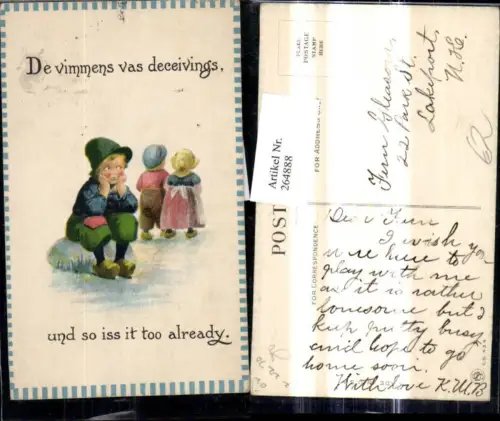 De vimmens vas deceivings,
und so iss it too already.
Artikel Nr.
264888
PLACE
POSTAGE
STAMP
HERE
FOR ADDRESS
POST
FOR CORRESPONDENCE
Fern Gleason
22 Park St.
Lakeport,
N.H.
Dear Fern
I wish you
were here to
play with me
as it is rather
lonesome but I
keep pretty busy
and hope to go
home soon.
With love K.M.B